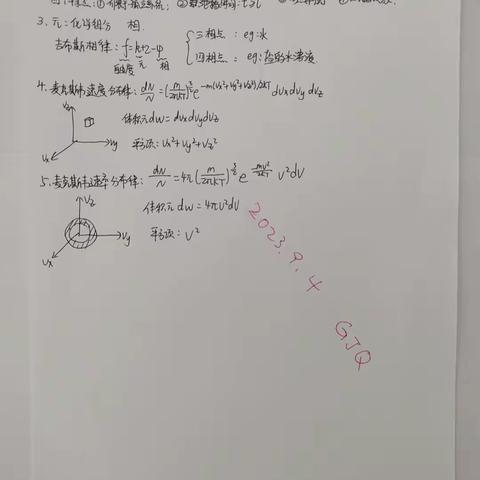 3、元:化学组分 相
吉布斯相律:f=k+2-φ
自由度 元 相
三相点:eg:水
四相点:eg:盐的水溶液
4、麦克斯韦速度分布律:dN/N=(m/2πkT)^(3/2) e^(-m(Vx²+Vy²+Vz²)/2kT) dVxdVydVz
Vz
Vy
Vx
体积元dw=dVxdVydVz
平方项:Vx²+Vy²+Vz²
5、麦克斯韦速率分布律:dN/N=4π(m/2πkT)^(3/2) e^(-mv²/2kT) V²dV
Vz
Vy
Vx
体积元dw=4πV²dV
平方项:V²
2023.9.4
GJQ